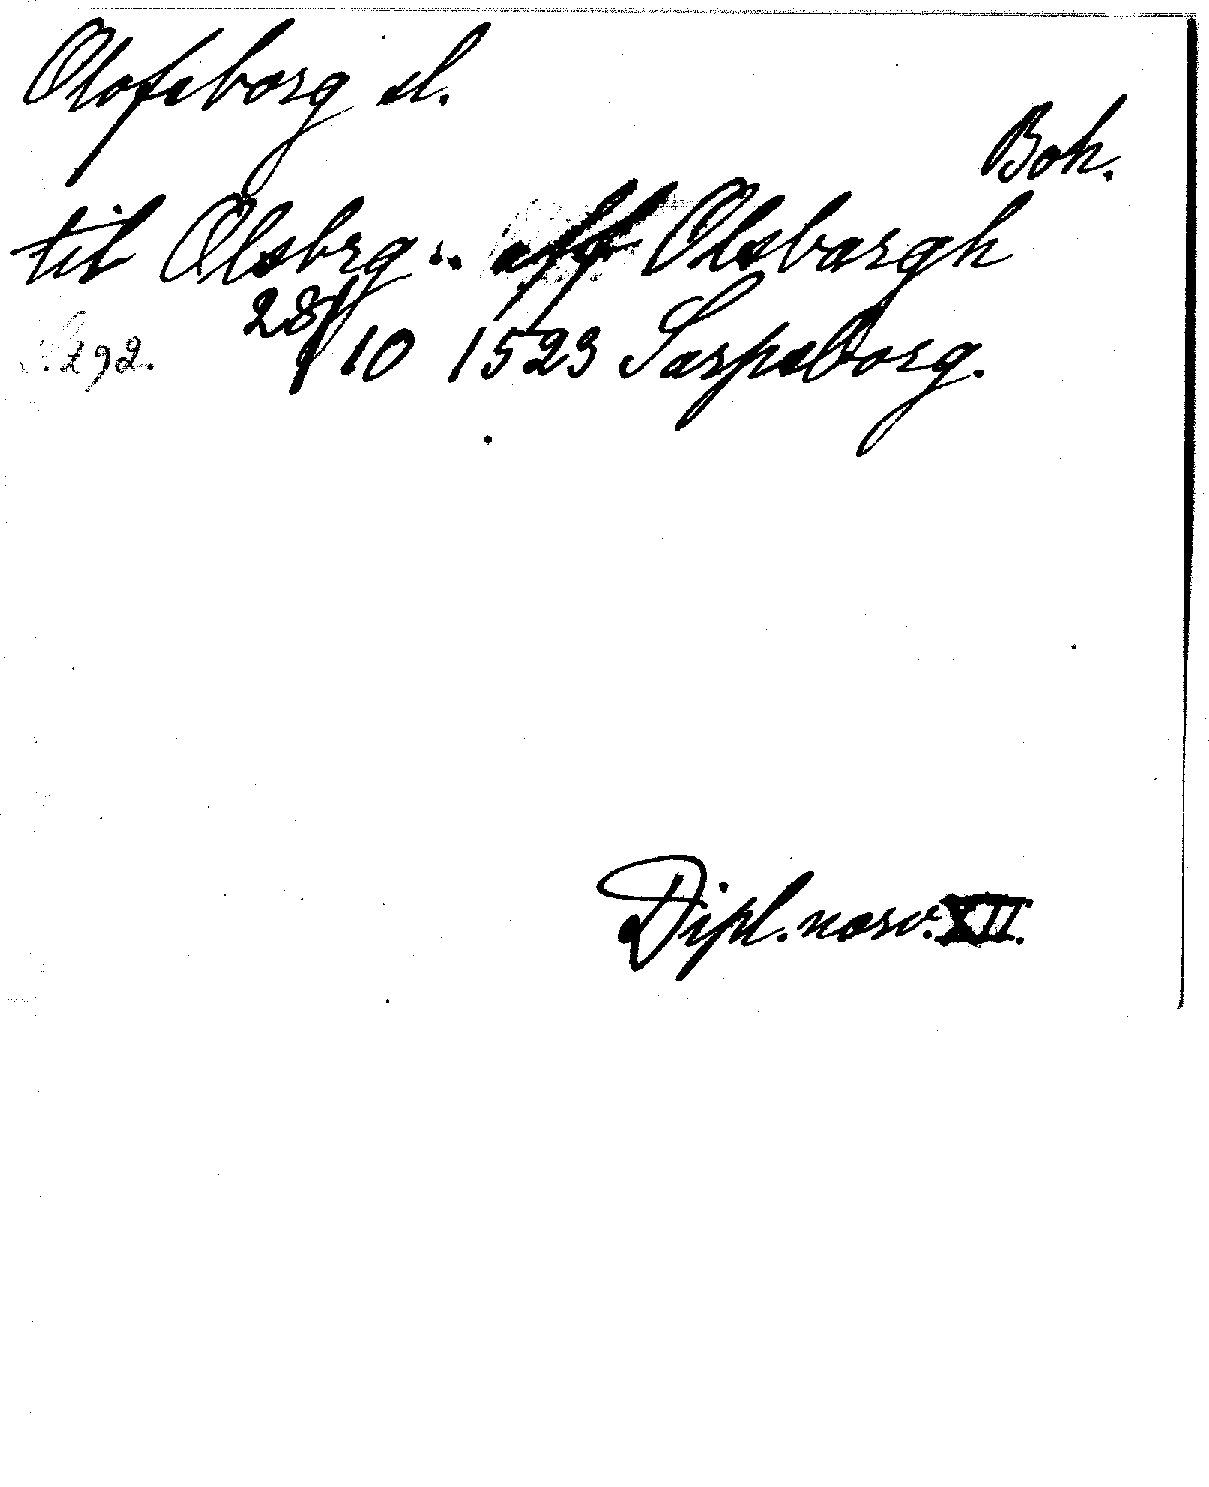 Olofsborg sl.
Boh.
til Olsbrg .. aff Olsborgh
s. 292. 28/10 1523 Sarpsborg.
Dipl. norv. XII.